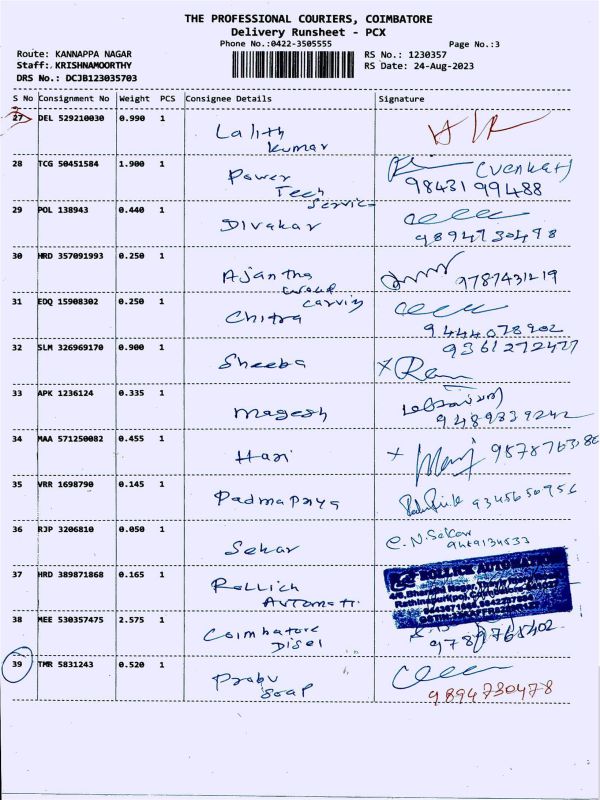 THE PROFESSIONAL COURIERS, COIMBATORE
Delivery Runsheet - PCX
Phone No.:0422-3505555 Page No.:3
Route: KANNAPPA NAGAR RS No.: 1230357
Staff: KRISHNAMOORTHY RS Date: 24-Aug-2023
DRS No.: DCJB123035703
S No Consignment No Weight PCS Consignee Details Signature
27 DEL 529210030 0.990 1 Lalith
Kumar
28 TCG 50451584 1.900 1 Power (Venkat)
Tech 98431 99488
Service
29 POL 138943 0.440 1 Divakar
9894730498
30 HRD 357091993 0.250 1 Ajantha 9787431219
wood
carving
31 EDQ 15908302 0.250 1 Chitra
9444078902
32 SLM 326969170 0.900 1 9361272427
Sheeba
33 APK 1236124 0.335 1 Magesh
9489839242
34 MAA 571250082 0.455 1 Hari
35 VRR 1698790 0.145 1 Padmapriya 9345650956
36 RJP 3206810 0.050 1 Sekar C.N.Sekar
9489134533
37 HRD 389871868 0.165 1 Rollich ROLLICK AUTOMATION
Automati
38 MEE 530357475 2.575 1 Coimbatore
Disel 9789765402
39 TMR 5831243 0.520 1 Prabu
Soap 9894730478